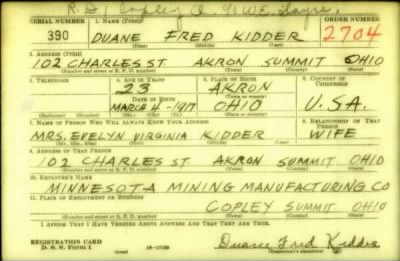 R.D.1 Copley O.
SERIAL NUMBER
ORDER NUMBER
390
DUANE FRED KIDDER
2704
(First) (Middle) (Last)
2. ADDRESS (Print)
102 CHARLES ST. AKRON SUMMIT OHIO
(Number and street or R. F. D. number) (Town) (County) (State)
3. TELEPHONE
4. AGE IN YEARS
5. PLACE OF BIRTH
6. COUNTRY OF CITIZENSHIP
23
AKRON
DATE OF BIRTH
(Town or county)
U.S.A.
MARCH 4-1917
OHIO
(Exchange) (Number) (Mo.) (Day) (Yr.) (State or country)
7. NAME OF PERSON WHO WILL ALWAYS KNOW YOUR ADDRESS
8. RELATIONSHIP OF THAT PERSON
MRS. EVELYN VIRGINIA KIDDER
WIFE
(Mr., Mrs., Miss) (First) (Middle) (Last)
9. ADDRESS OF THAT PERSON
102 CHARLES ST AKRON SUMMIT OHIO
(Number and street or R. F. D. number) (Town) (County) (State)
10. EMPLOYER'S NAME
MINNESOTA MINING MANUFACTURING CO
11. PLACE OF EMPLOYMENT OR BUSINESS
COPLEY SUMMIT OHIO
(Number and street or R. F. D. number) (Town) (County) (State)
I AFFIRM THAT I HAVE VERIFIED ABOVE ANSWERS AND THAT THEY ARE TRUE.
REGISTRATION CARD
D. S. S. Form 1
16-17105
Duane Fred Kidder
(Registrant's signature)